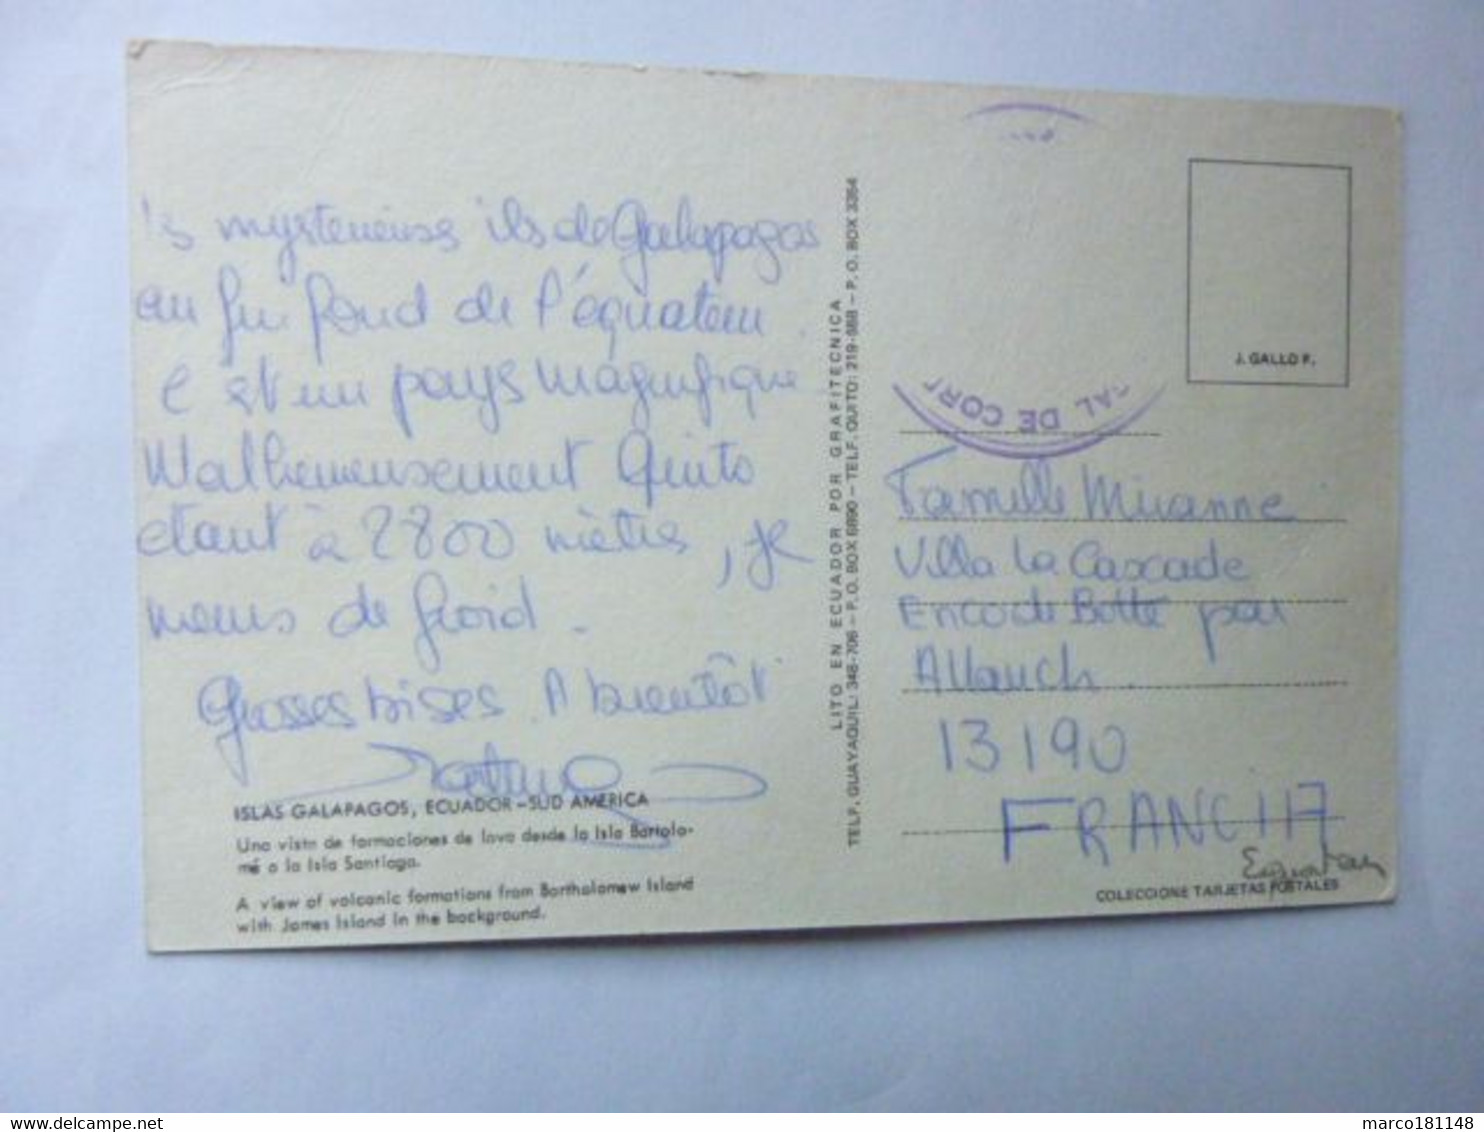 mysterieuses iles de Galapagos
au fin fond de l'équateur.
C'est un pays magnifique
Malheureusement Quito
etant à 2800 mètres, je
meurs de froid.
Grosses bises. A bientôt
ISLAS GALAPAGOS, ECUADOR - SUD AMERICA
Una vista de formaciones de lava desde la Isla Bartolo-
mé a la Isla Santiago.
A view of volcanic formations from Bartholomew Island
with James Island in the background.
LITO EN ECUADOR POR GRAFITECNICA
TELF. GUAYAQUIL: 348-706 - P.O. BOX 6890 - TELF. QUITO: 219-588 - P.O. BOX 3354
J. GALLO F.
DE
Famille Miranne
Villa La Cascade
Enco de Botte par
Allauch.
13190
FRANCIA
Equateur
COLECCIONE TARJETAS POSTALES
marco181148